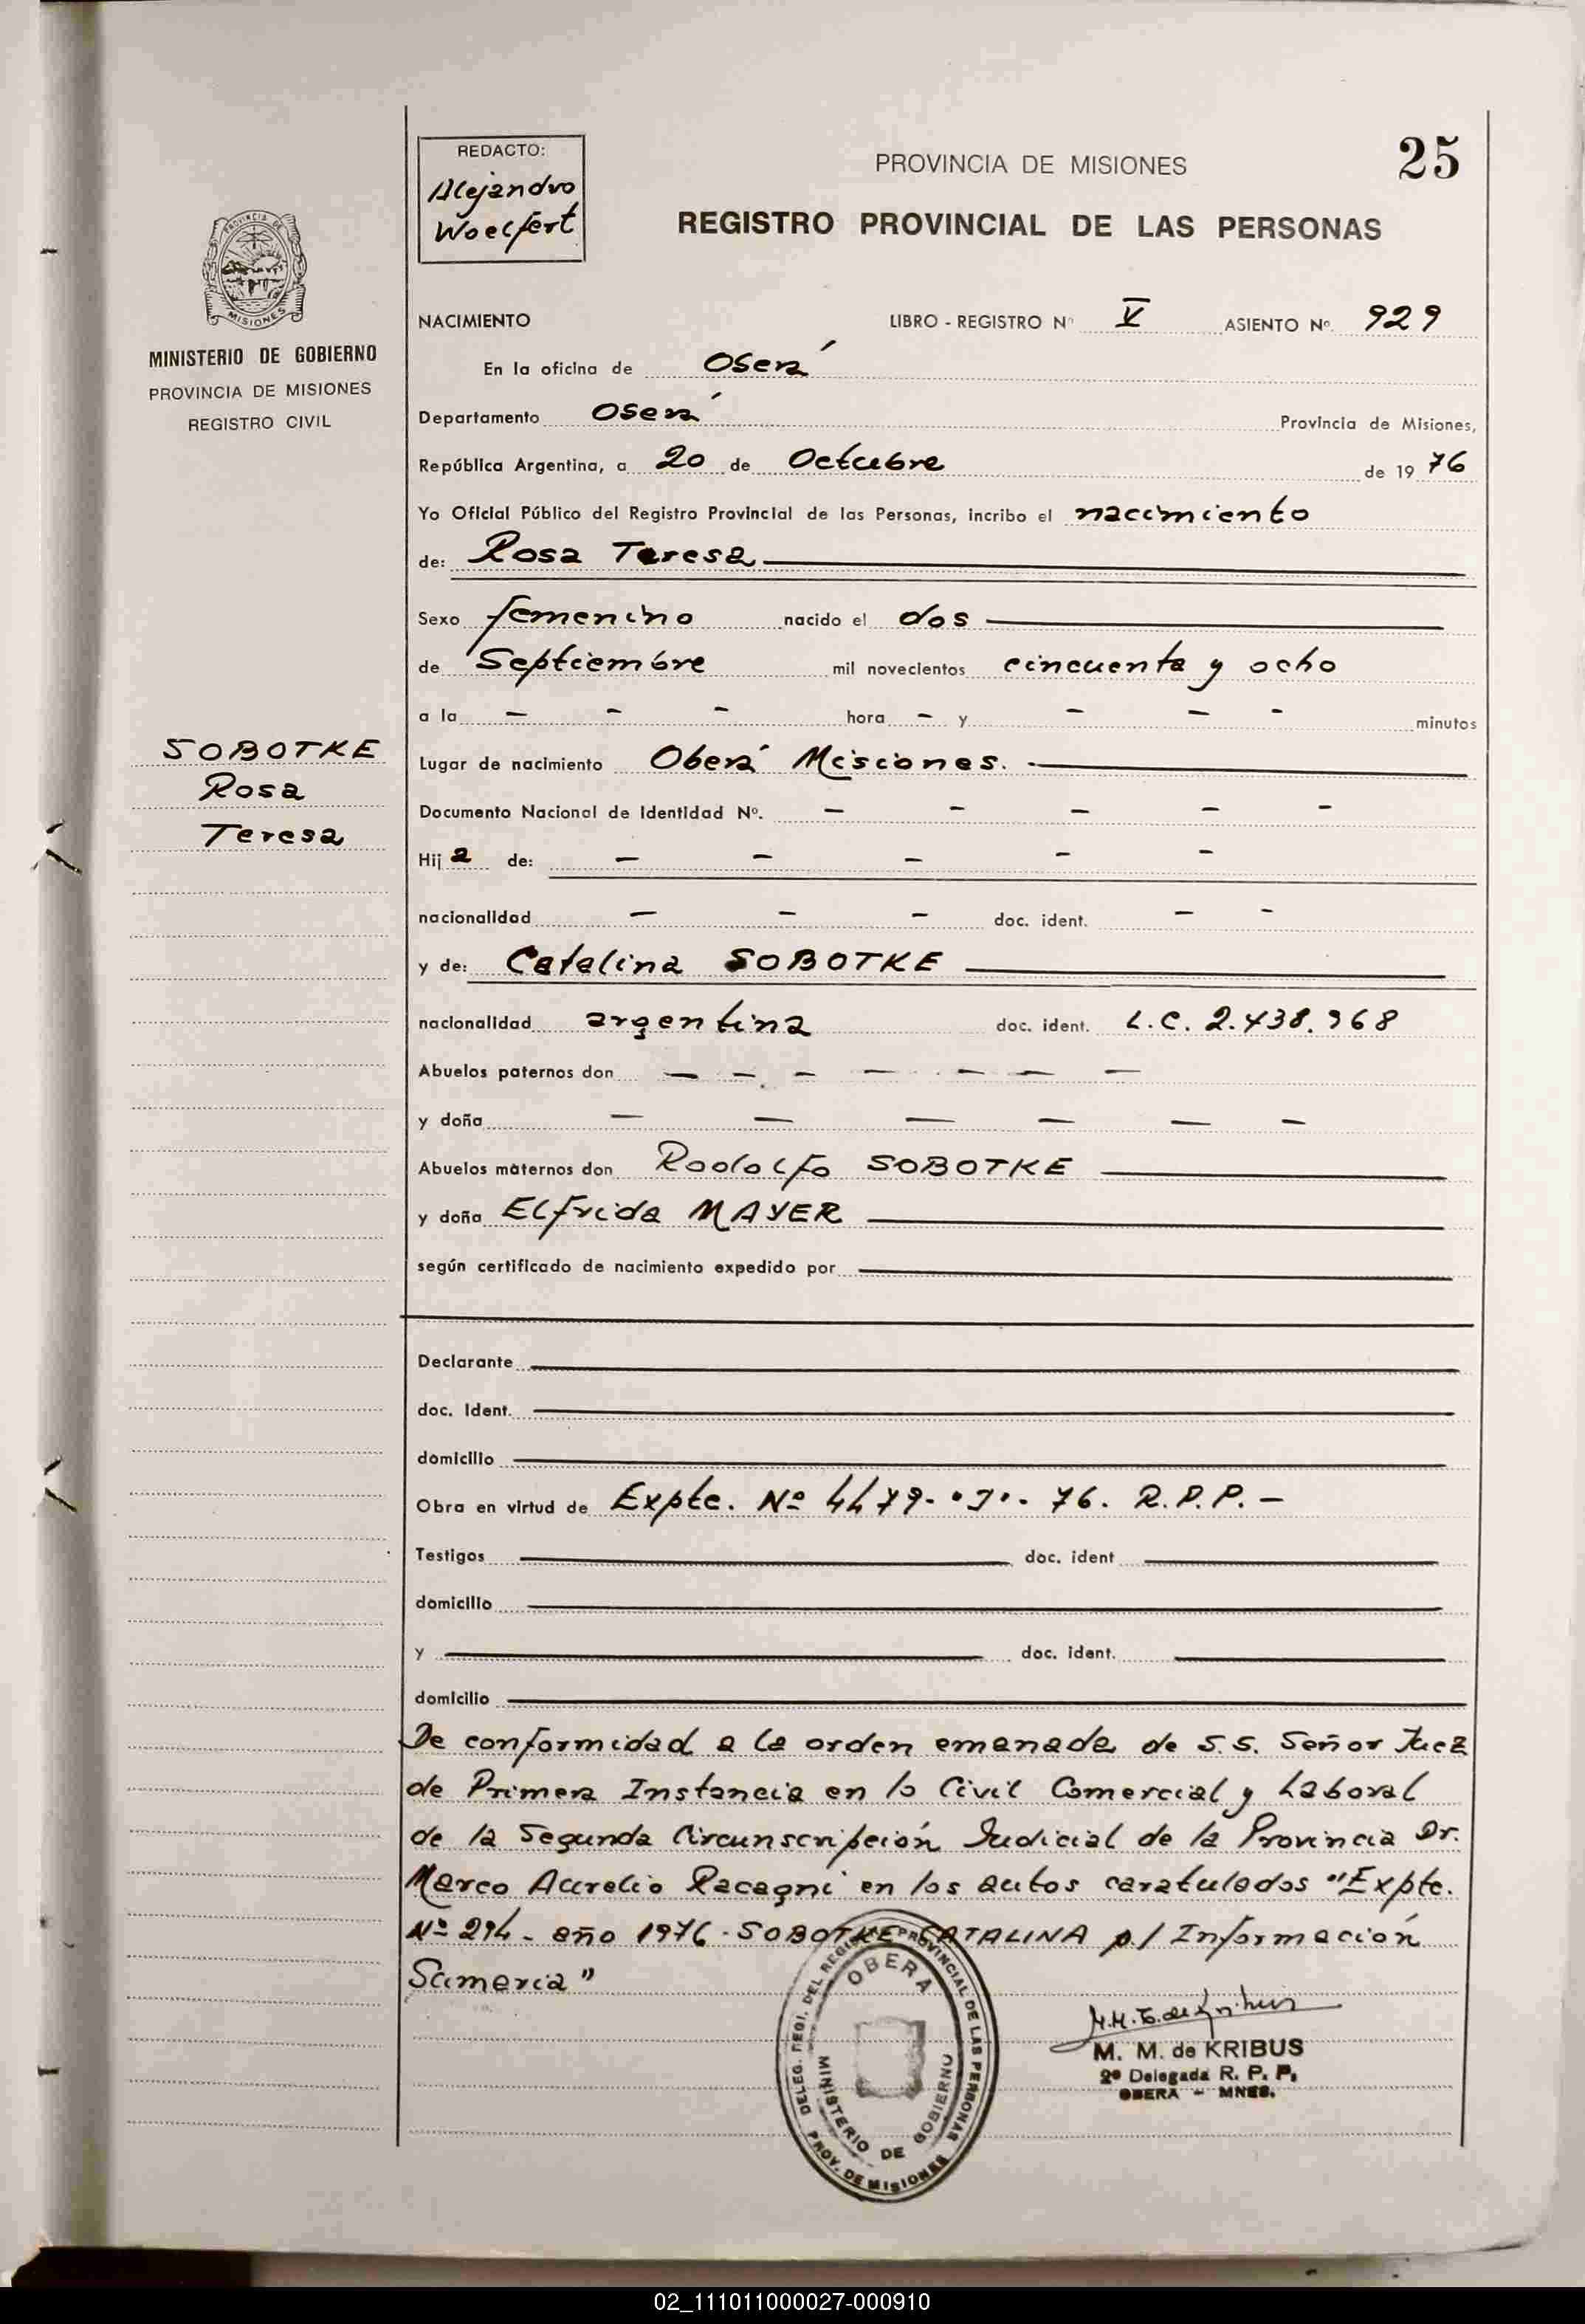 REDACTO:
Alejandro
Woelfert
PROVINCIA DE MISIONES
25
REGISTRO PROVINCIAL DE LAS PERSONAS
PROVINCIA DE
MISIONES
MINISTERIO DE GOBIERNO
PROVINCIA DE MISIONES
REGISTRO CIVIL
SOBOTKE
Rosa
Teresa
NACIMIENTO LIBRO - REGISTRO Nº V ASIENTO Nº. 929
En la oficina de Oberá
Departamento Oberá Provincia de Misiones,
República Argentina, a 20 de Octubre de 19 76
Yo Oficial Público del Registro Provincial de las Personas, incribo el nacimiento
de: Rosa Teresa
Sexo femenino nacido el dos
de Septiembre mil novecientos cincuenta y ocho
a la — — — hora — y — — — minutos
Lugar de nacimiento Oberá Misiones. —
Documento Nacional de Identidad Nº. — — — — —
Hij a de: — — — — —
nacionalidad — — — doc. ident. — —
y de: Catalina SOBOTKE
nacionalidad argentina doc. ident. L.C. 2.438.968
Abuelos paternos don — — — — — — —
y doña — — — — — —
Abuelos maternos don Rodolfo SOBOTKE
y doña Elfrida MAYER
según certificado de nacimiento expedido por
Declarante
doc. Ident.
domicilio
Obra en virtud de Expte. Nº 4479-"J"- 76. R.P.P. —
Testigos doc. ident
domicilio
y doc. ident.
domicilio
De conformidad a la orden emanada de S.S. Señor Juez
de Primera Instancia en lo Civil Comercial y Laboral
de la Segunda Circunscripción Judicial de la Provincia Dr.
Marco Aurelio Racagni en los autos caratulados "Expte.
Nº 294- año 1976-SOBOTKE CATALINA p/ Información
Sumaria"
DELEG. REGI. DEL REGISTRO PROVINCIAL DE LAS PERSONAS
OBERA
MINISTERIO DE GOBIERNO
PROV. DE MISIONES
M. M. de KRIBUS
2ª Delegada R. P. P.
OBERA - MNES.
02_111011000027-000910